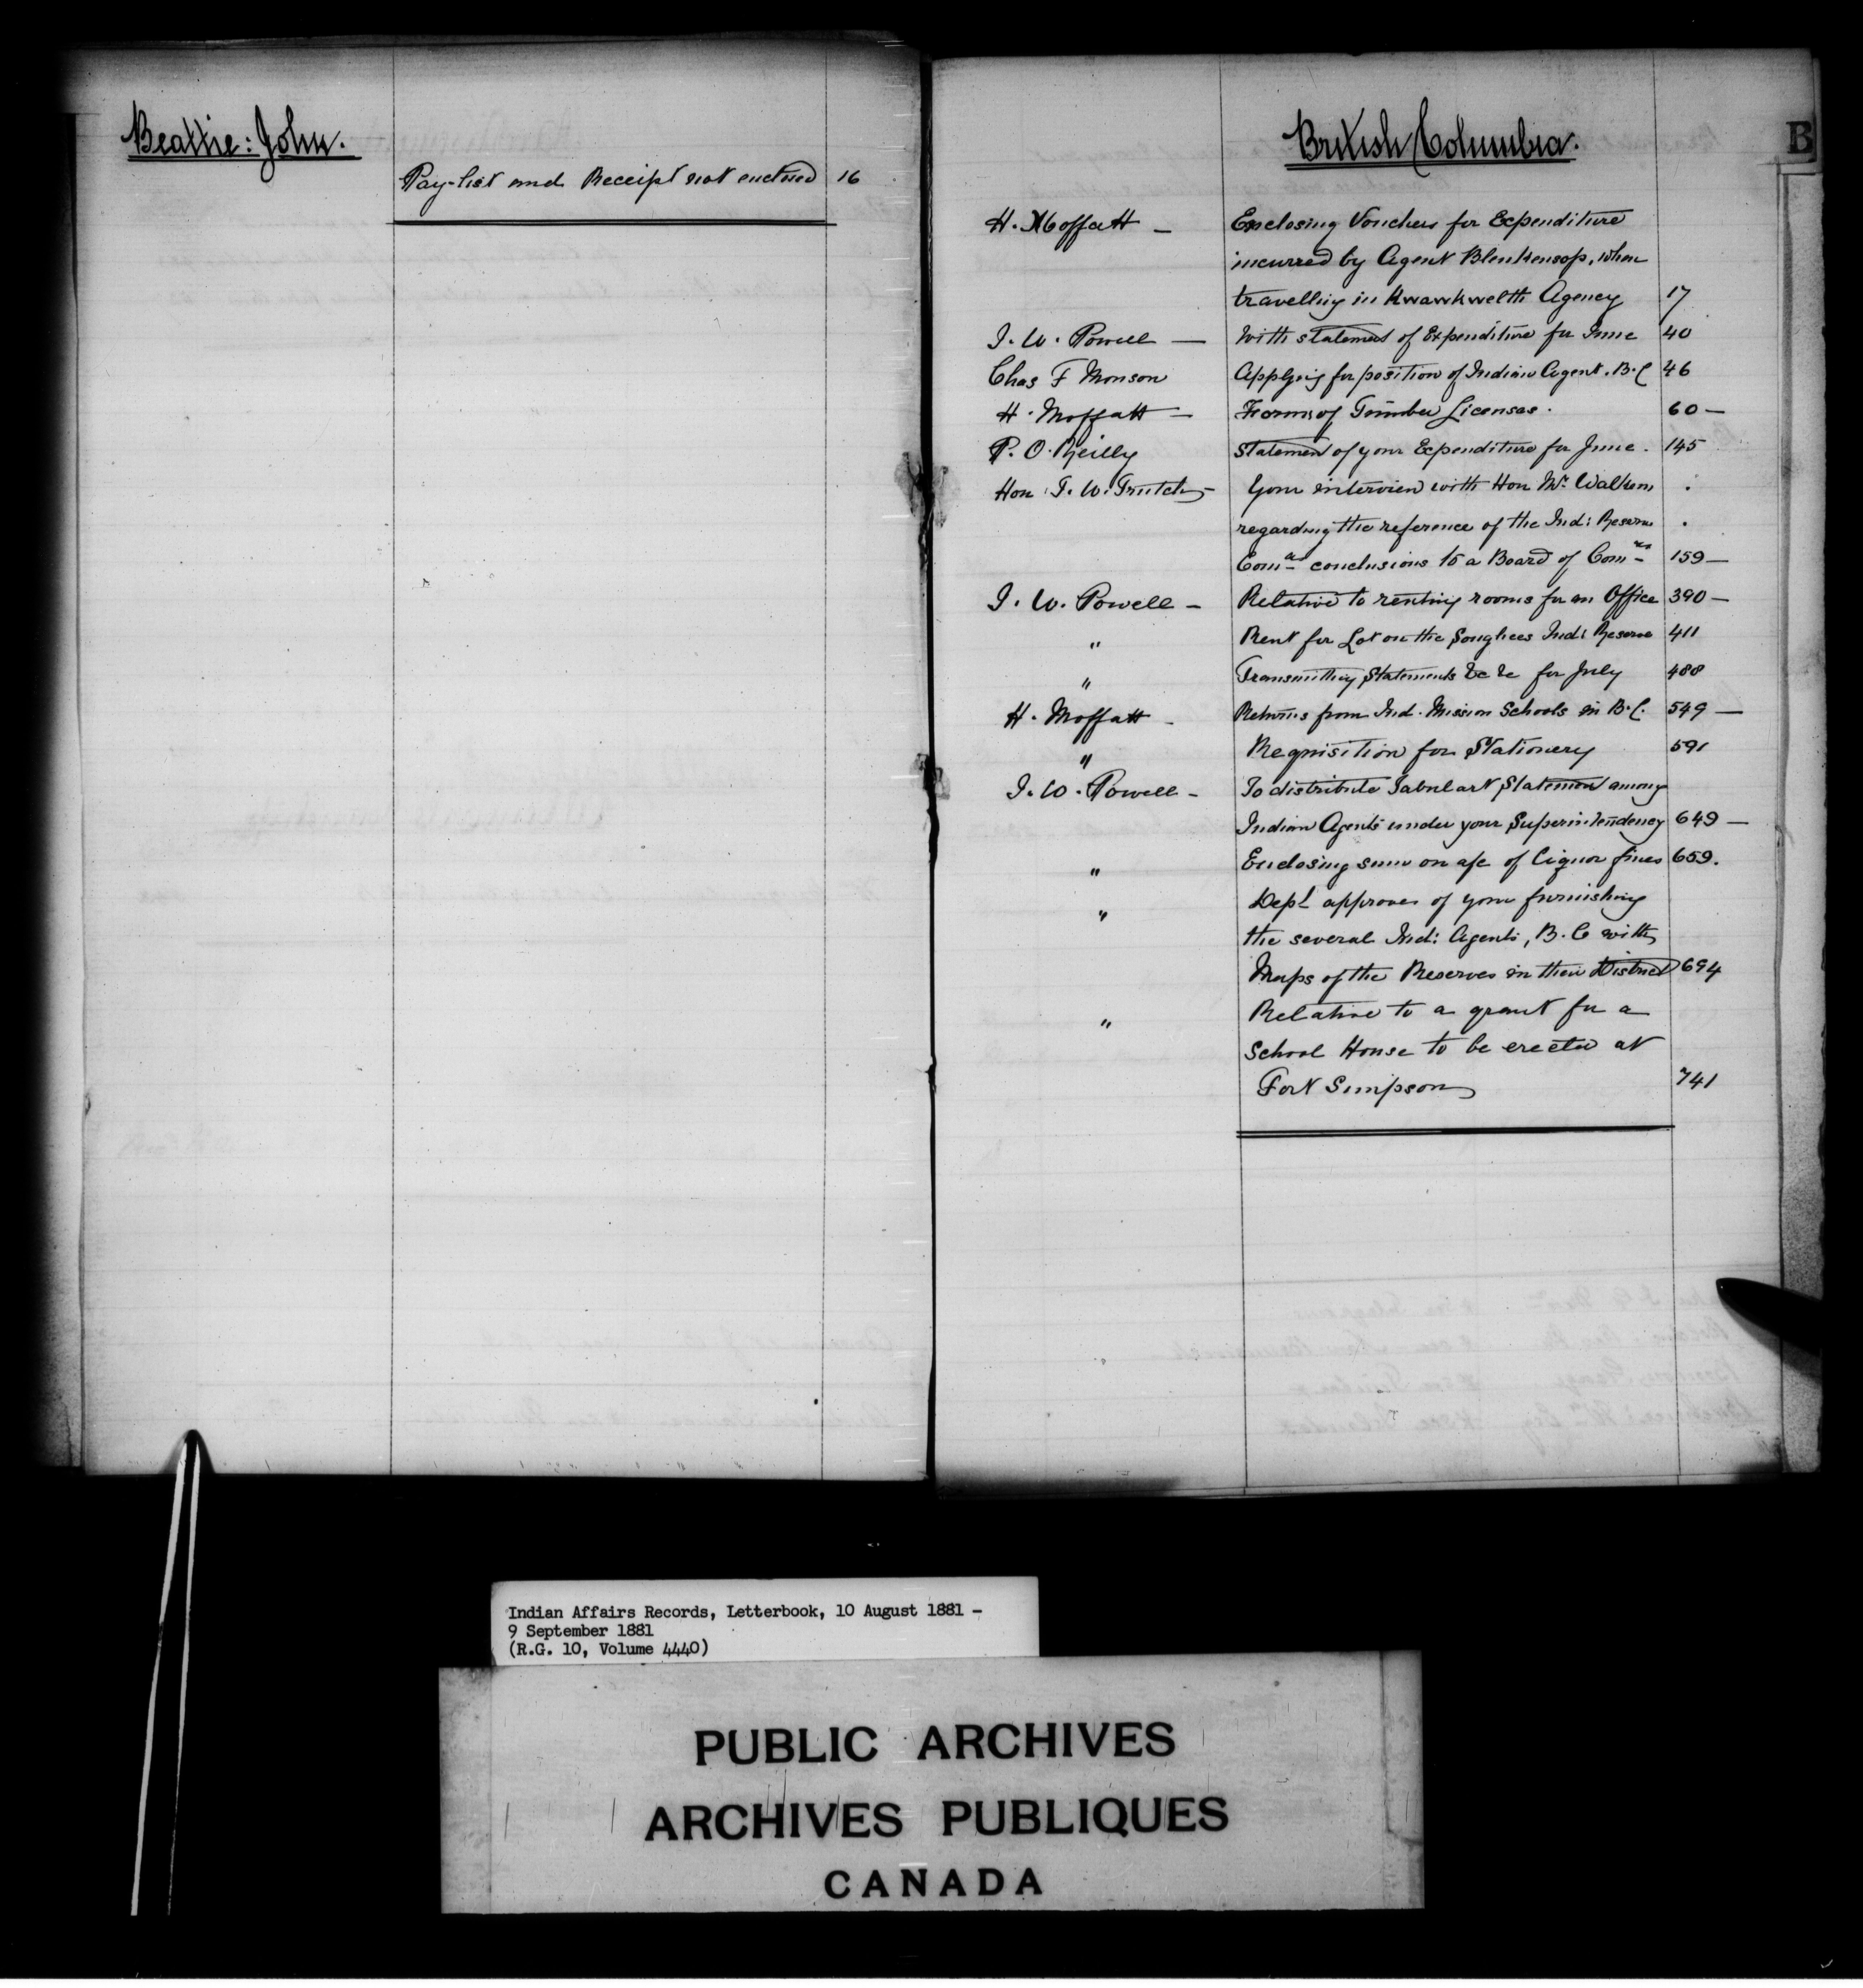 Beattie: John.
Pay-list and Receipt not enclosed 16
British Columbia.
B
H. Moffatt — Enclosing Vouchers for Expenditure
incurred by Agent Blenkensop, when
travelling in Kwawkwelth Agency 17
I. W. Powell — With statement of Expenditure for June 40
Chas F Monson Applying for position of Indian Agent. B.C 46
H. Moffatt — Forms of Timber Licenses. 60 —
P. O. Reilly Statement of your Expenditure for June. 145
Hon: J. W. Trutch — Your interview with Hon Mr. Walkem
regarding the reference of the Ind: Reserve
Comn conclusions to a Board of Comrs 159 —
I. W. Powell — Relative to renting rooms for an Office 390 —
" Rent for Lot on the Songhees Ind: Reserve 411
" Transmitting Statements &c &c for July 488
H. Moffatt — Returns from Ind. Mission Schools in B.C. 549 —
" Requisition for Stationery 591
I. W. Powell — To distribute Tabular Statement among
Indian Agents under your Superintendency 649 —
" Enclosing sum on a/c of liquor fines 659.
" Dept approves of your furnishing
the several Ind: Agents, B.C with
Maps of the Reserves in their District 694
" Relative to a grant for a
School House to be erected at
Fort Simpson 741
Indian Affairs Records, Letterbook, 10 August 1881 -
9 September 1881
(R.G. 10, Volume 4440)
PUBLIC ARCHIVES
ARCHIVES PUBLIQUES
CANADA